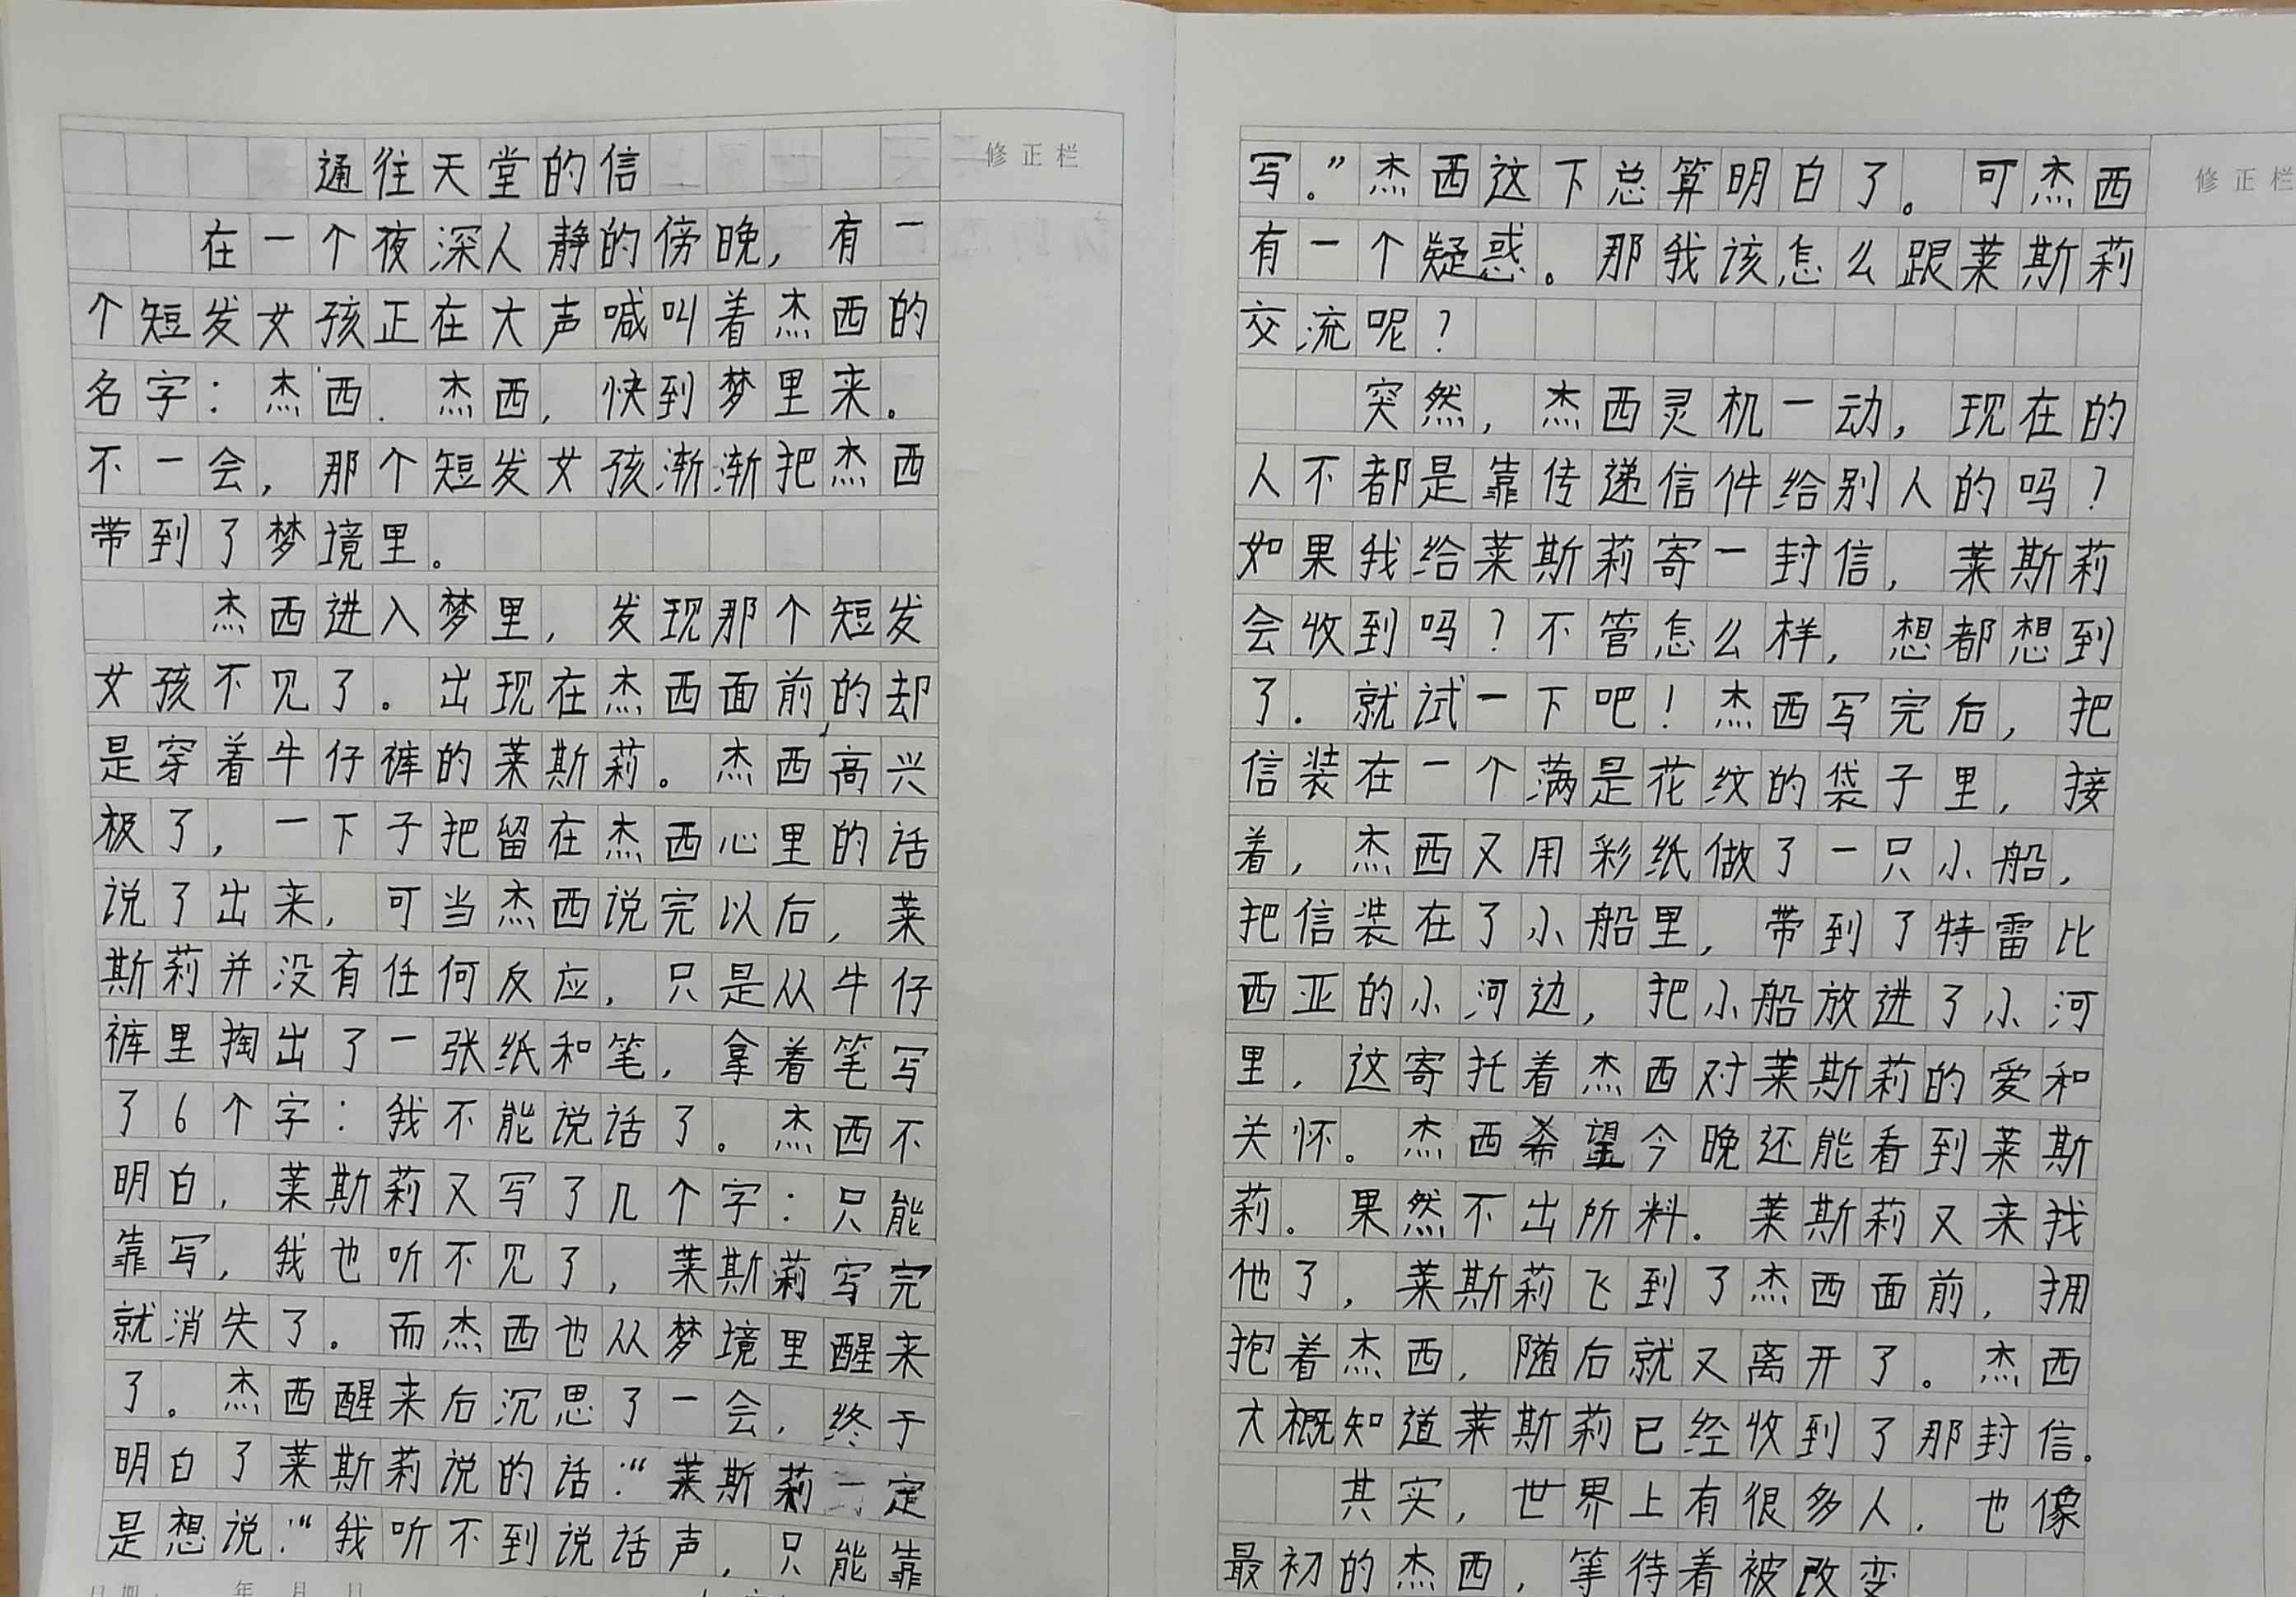 通往天堂的信
修正栏
在一个夜深人静的傍晚，有一
个短发女孩正在大声喊叫着杰西的
名字：杰西．杰西，快到梦里来。
不一会，那个短发女孩渐渐把杰西
带到了梦境里。
杰西进入梦里，发现那个短发
女孩不见了。出现在杰西面前的却
是穿着牛仔裤的莱斯莉。杰西高兴
极了，一下子把留在杰西心里的话
说了出来，可当杰西说完以后，莱
斯莉并没有任何反应，只是从牛仔
裤里掏出了一张纸和笔，拿着笔写
了6个字：我不能说话了。杰西不
明白，莱斯莉又写了几个字：只能
靠写，我也听不见了，莱斯莉写完
就消失了。而杰西也从梦境里醒来
了。杰西醒来后沉思了一会，终于
明白了莱斯莉说的话：“莱斯莉一定
是想说：“我听不到说话声，只能靠
日期： 年 月 日
写。”杰西这下总算明白了。可杰西
修正栏
有一个疑惑。那我该怎么跟莱斯莉
交流呢？
突然，杰西灵机一动，现在的
人不都是靠传递信件给别人的吗？
如果我给莱斯莉寄一封信，莱斯莉
会收到吗？不管怎么样，想都想到
了．就试一下吧！杰西写完后，把
信装在一个满是花纹的袋子里，接
着，杰西又用彩纸做了一只小船，
把信装在了小船里，带到了特雷比
西亚的小河边，把小船放进了小河
里，这寄托着杰西对莱斯莉的爱和
关怀。杰西希望今晚还能看到莱斯
莉。果然不出所料．莱斯莉又来找
他了，莱斯莉飞到了杰西面前，拥
抱着杰西，随后就又离开了。杰西
大概知道莱斯莉已经收到了那封信。
其实，世界上有很多人，也像
最初的杰西，等待着被改变